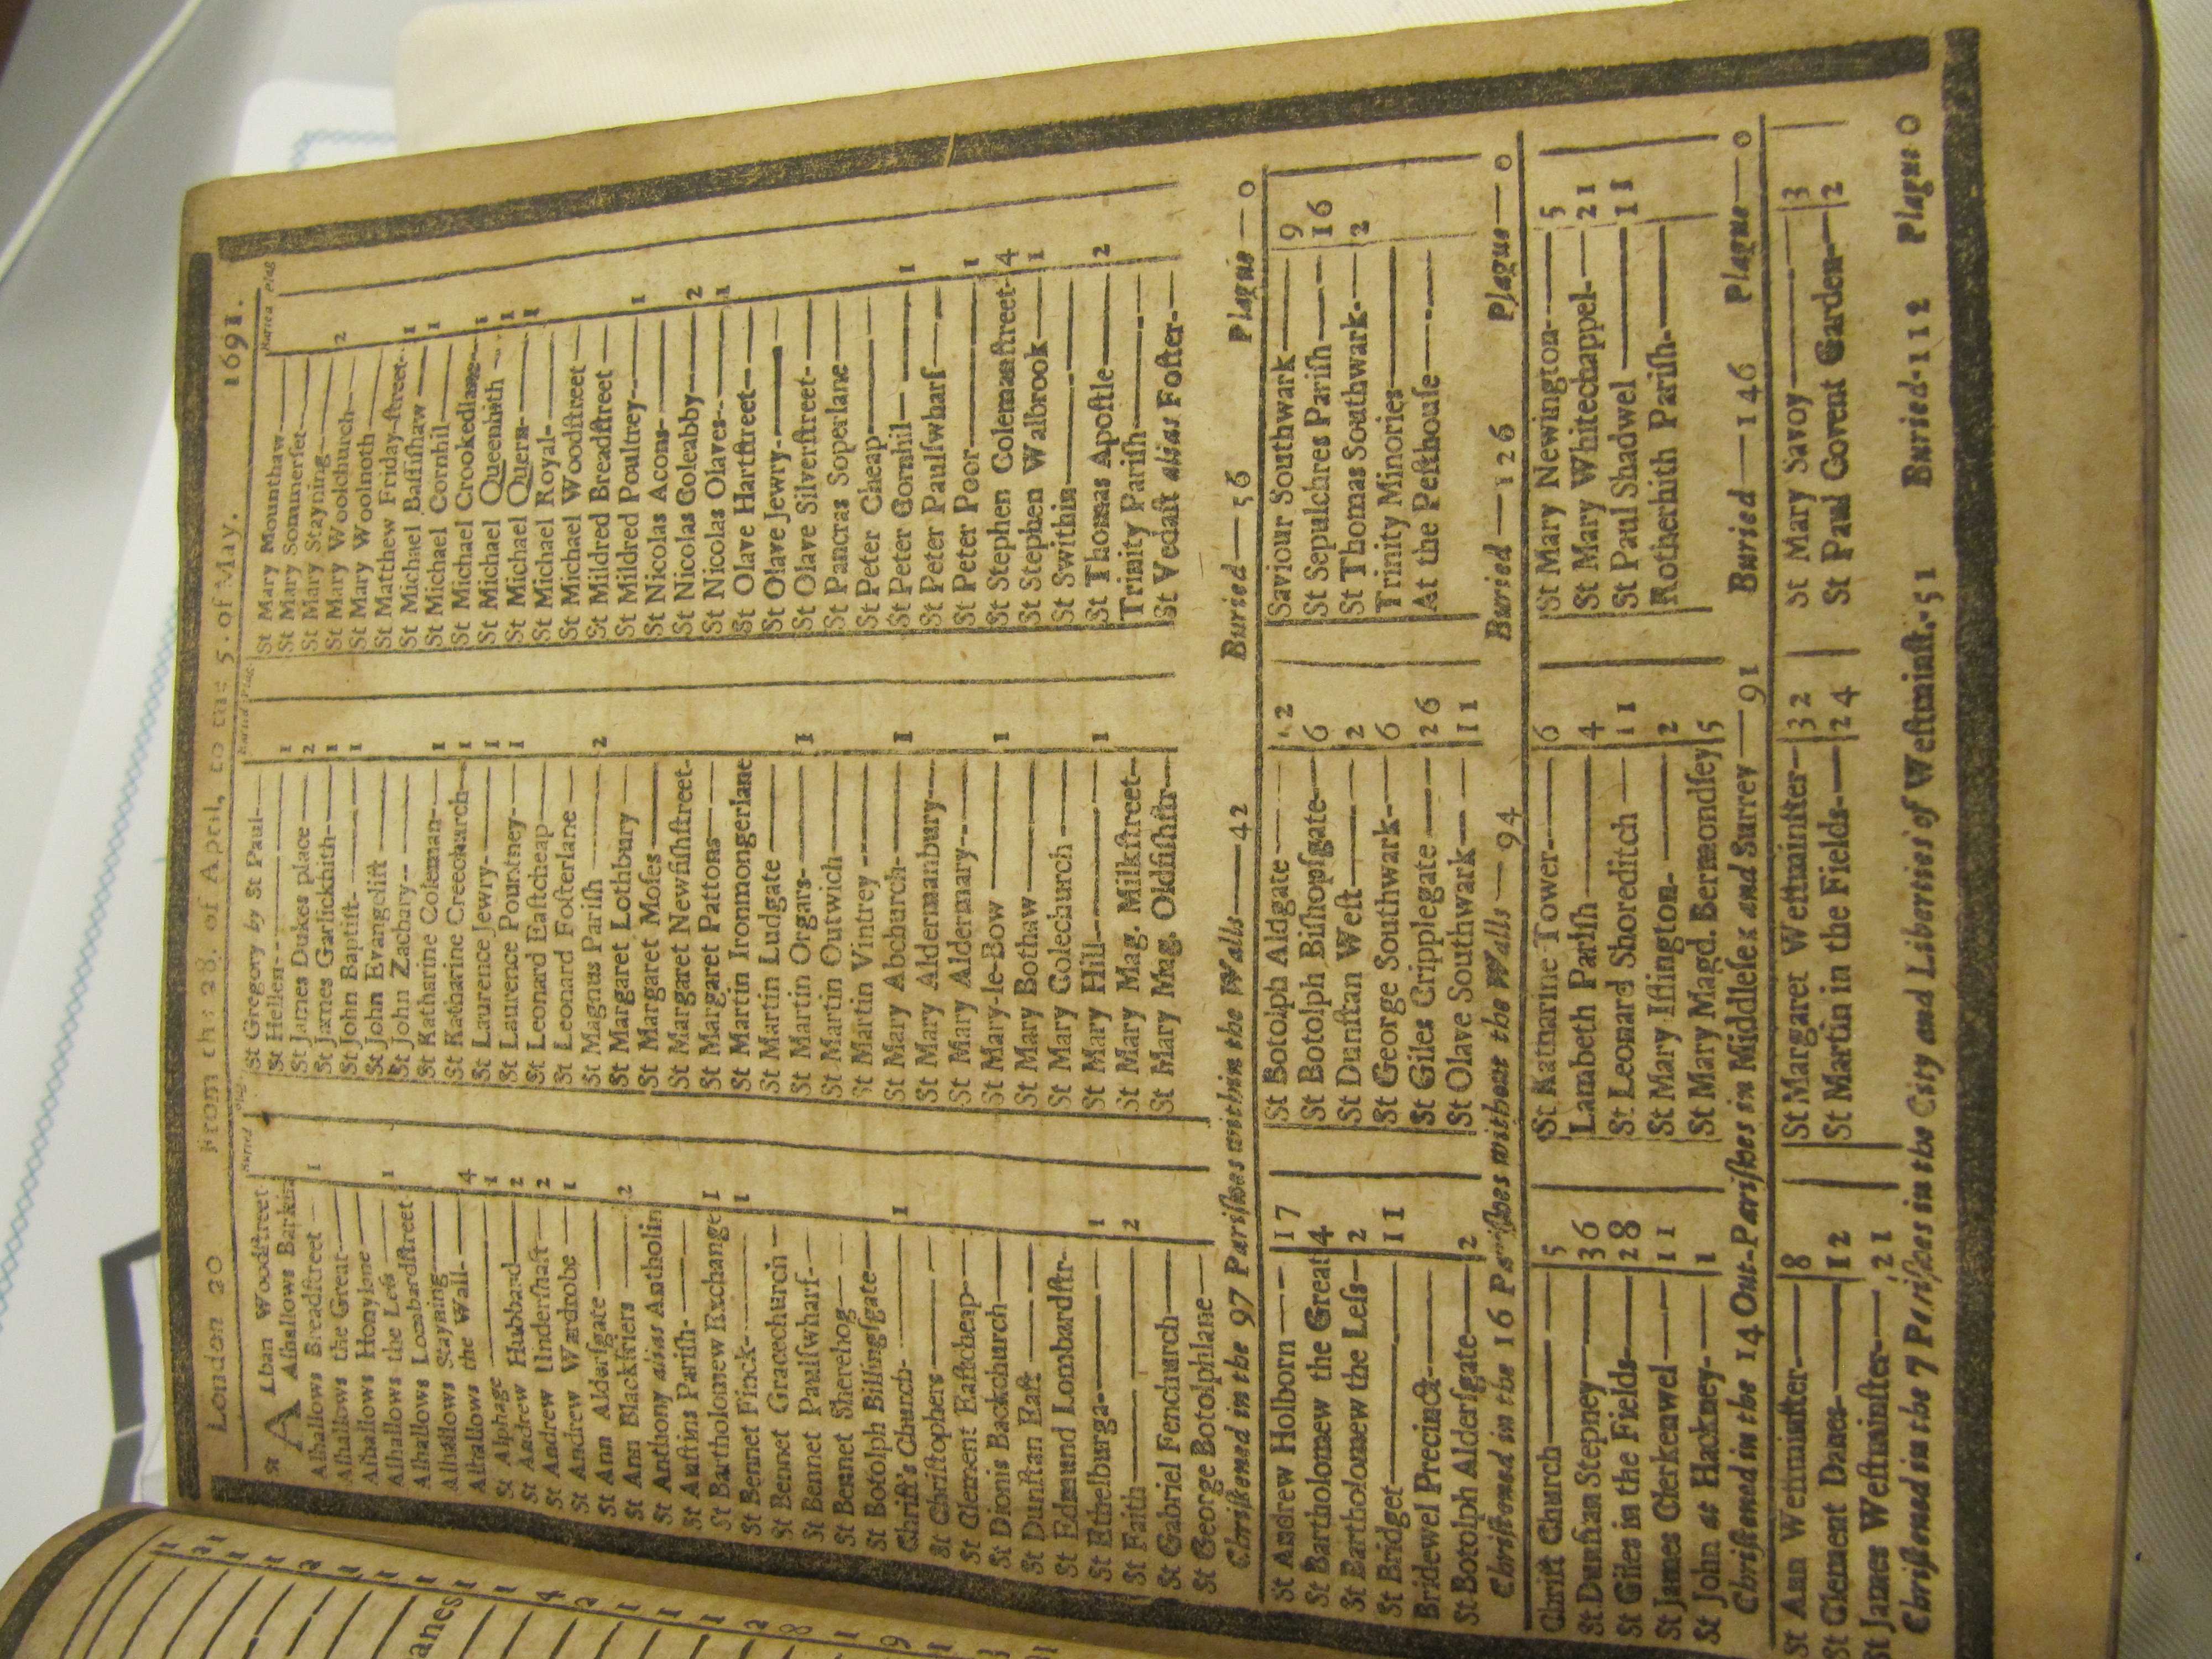 London 20 From the 28. of April, to the 5. of May. 1691.
Buried Plag.
St Alban Woodſtreet
Alhallows Barkin
Alhallows Breadſtreet 1
Alhallows the Great
Alhallows Honylane
Alhallows the Leſs 1
Alhallows Lombardſtreet
Alhallows Stayning
Alhallows the Wall 4
St Alphage 1
St Andrew Hubbard 2
St Andrew Underſhaft 2
St Andrew Wardrobe 1
St Ann Alderſgate
St Ann Blackfriers 2
St Anthony alias Antholin
St Auſtins Pariſh
St Bartholomew Exchange 1
St Bennet Finck 1
St Bennet Gracechurch
St Bennet Paulſwharf
St Bennet Sherehog
St Botolph Billingſgate
Chriſt's Church 1
St Chriſtophers
St Clement Eaſtcheap
St Dionis Backchurch
St Dunſtan Eaſt
St Edmund Lombardſtr
St Ethelburga 1
St Faith 2
St Gabriel Fenchurch
St George Botolphlane
Buried Plag.
St Gregory by St Paul
St Hellen 1
St James Dukes place 2
St James Garlickhith 1
St John Baptiſt 1
St John Evangeliſt
St John Zachary
St Katharine Coleman 1
St Katharine Creechurch 1
St Laurence Jewry 1
St Laurence Pountney 1
St Leonard Eaſtcheap
St Leonard Foſterlane
St Magnus Pariſh 2
St Margaret Lothbury
St Margaret Moſes
St Margaret Newfiſhſtreet
St Margaret Pattons
St Martin Ironmongerlane
St Martin Ludgate
St Martin Orgars 1
St Martin Outwich
St Martin Vintrey
St Mary Abchurch 1
St Mary Aldermanbury
St Mary Aldermary
St Mary-le-Bow 1
St Mary Bothaw
St Mary Colechurch
St Mary Hill 1
St Mary Mag. Milkſtreet
St Mary Mag. Oldfiſhſtr
Buried Plag
St Mary Mounthaw
St Mary Sommerſet
St Mary Stayning
St Mary Woolchurch 2
St Mary Woolnoth
St Matthew Friday-ſtreet
St Michael Baſſiſhaw 1
St Michael Cornhil 1
St Michael Crookedlane 1
St Michael Queenhith 1
St Michael Quern 1
St Michael Royal
St Michael Woodſtreet
St Mildred Breadſtreet
St Mildred Poultrey 1
St Nicolas Acons
St Nicolas Coleabby 2
St Nicolas Olaves 1
St Olave Hartſtreet
St Olave Jewry
St Olave Silverſtreet
St Pancras Soperlane
St Peter Cheap
St Peter Cornhil 1
St Peter Paulſwharf
St Peter Poor 1
St Stephen Colemanſtreet 4
St Stephen Walbrook 1
St Swithin
St Thomas Apoſtle 2
Trinity Pariſh
St Vedaſt alias Foſter
Chriſtened in the 97 Pariſhes within the Walls—42 Buried—56 Plague—0
St Andrew Holborn 17
St Bartholomew the Great 4
St Bartholomew the Leſs 2
St Bridget 11
Bridewel Precinct
St Botolph Alderſgate 2
St Botolph Aldgate 12
St Botolph Biſhopſgate 6
St Dunſtan Weſt 2
St George Southwark 6
St Giles Cripplegate 26
St Olave Southwark 11
Saviour Southwark 9
St Sepulchres Pariſh 16
St Thomas Southwark 2
Trinity Minories
At the Peſthouſe
Chriſtened in the 16 Pariſhes without the Walls—94 Buried—126 Plague—0
Chriſt Church 5
St Dunſtan Stepney 36
St Giles in the Fields 28
St James Clerkenwel 11
St John at Hackney 1
St Katharine Tower 6
Lambeth Pariſh 4
St Leonard Shoreditch 11
St Mary Iſlington 2
St Mary Magd. Bermondſey 5
St Mary Newington 5
St Mary Whitechappel 21
St Paul Shadwel 11
Rotherhith Pariſh
Chriſtened in the 14 Out-Pariſhes in Middleſex and Surrey—91 Buried—146 Plague—0
St Ann Weſtminſter 8
St Clement Danes 12
St James Weſtminſter 21
St Margaret Weſtminſter 32
St Martin in the Fields 24
St Mary Savoy 3
St Paul Covent Garden 2
Chriſtened in the 7 Pariſhes in the City and Liberties of Weſtminſt.-51 Buried-112 Plague 0